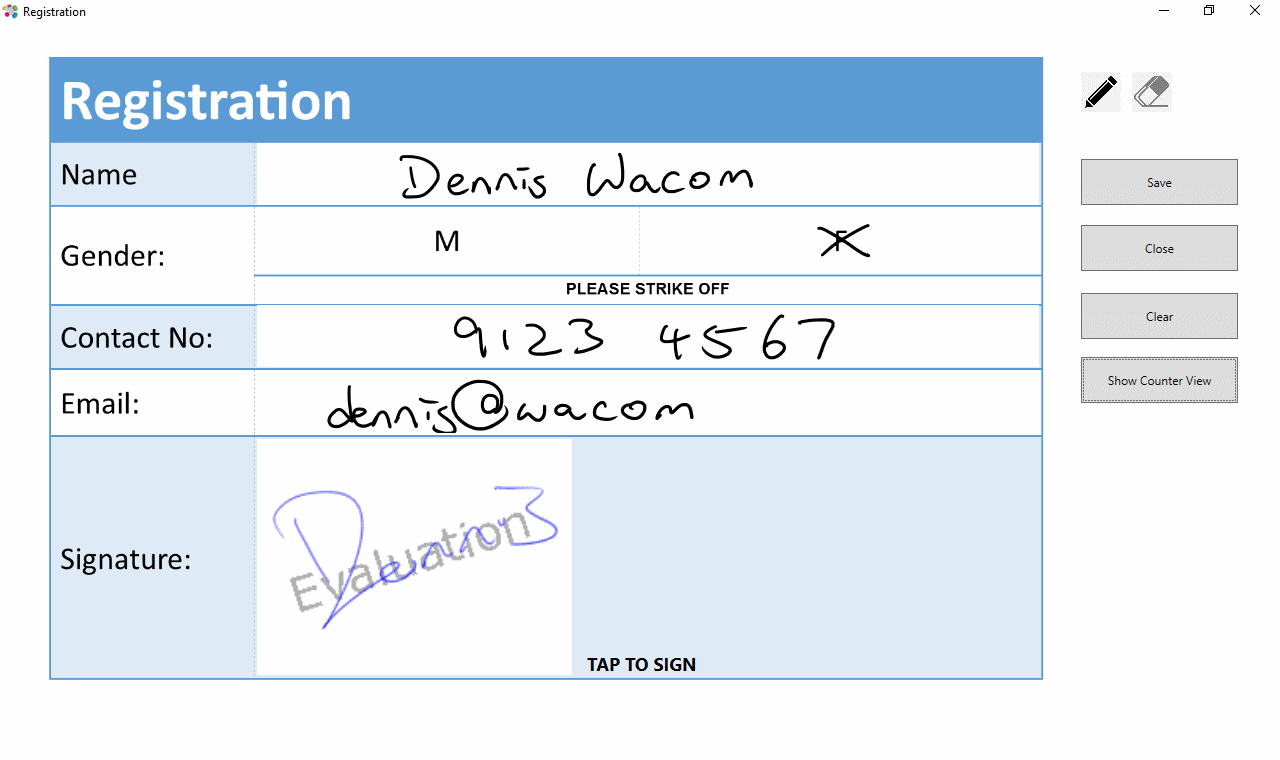 Registration
Registration
Name Dennis Wacom
Gender: M F
PLEASE STRIKE OFF
Contact No: 9123 4567
Email: dennis@wacom
Signature: Dennis
Evaluation
TAP TO SIGN
Save
Close
Clear
Show Counter View